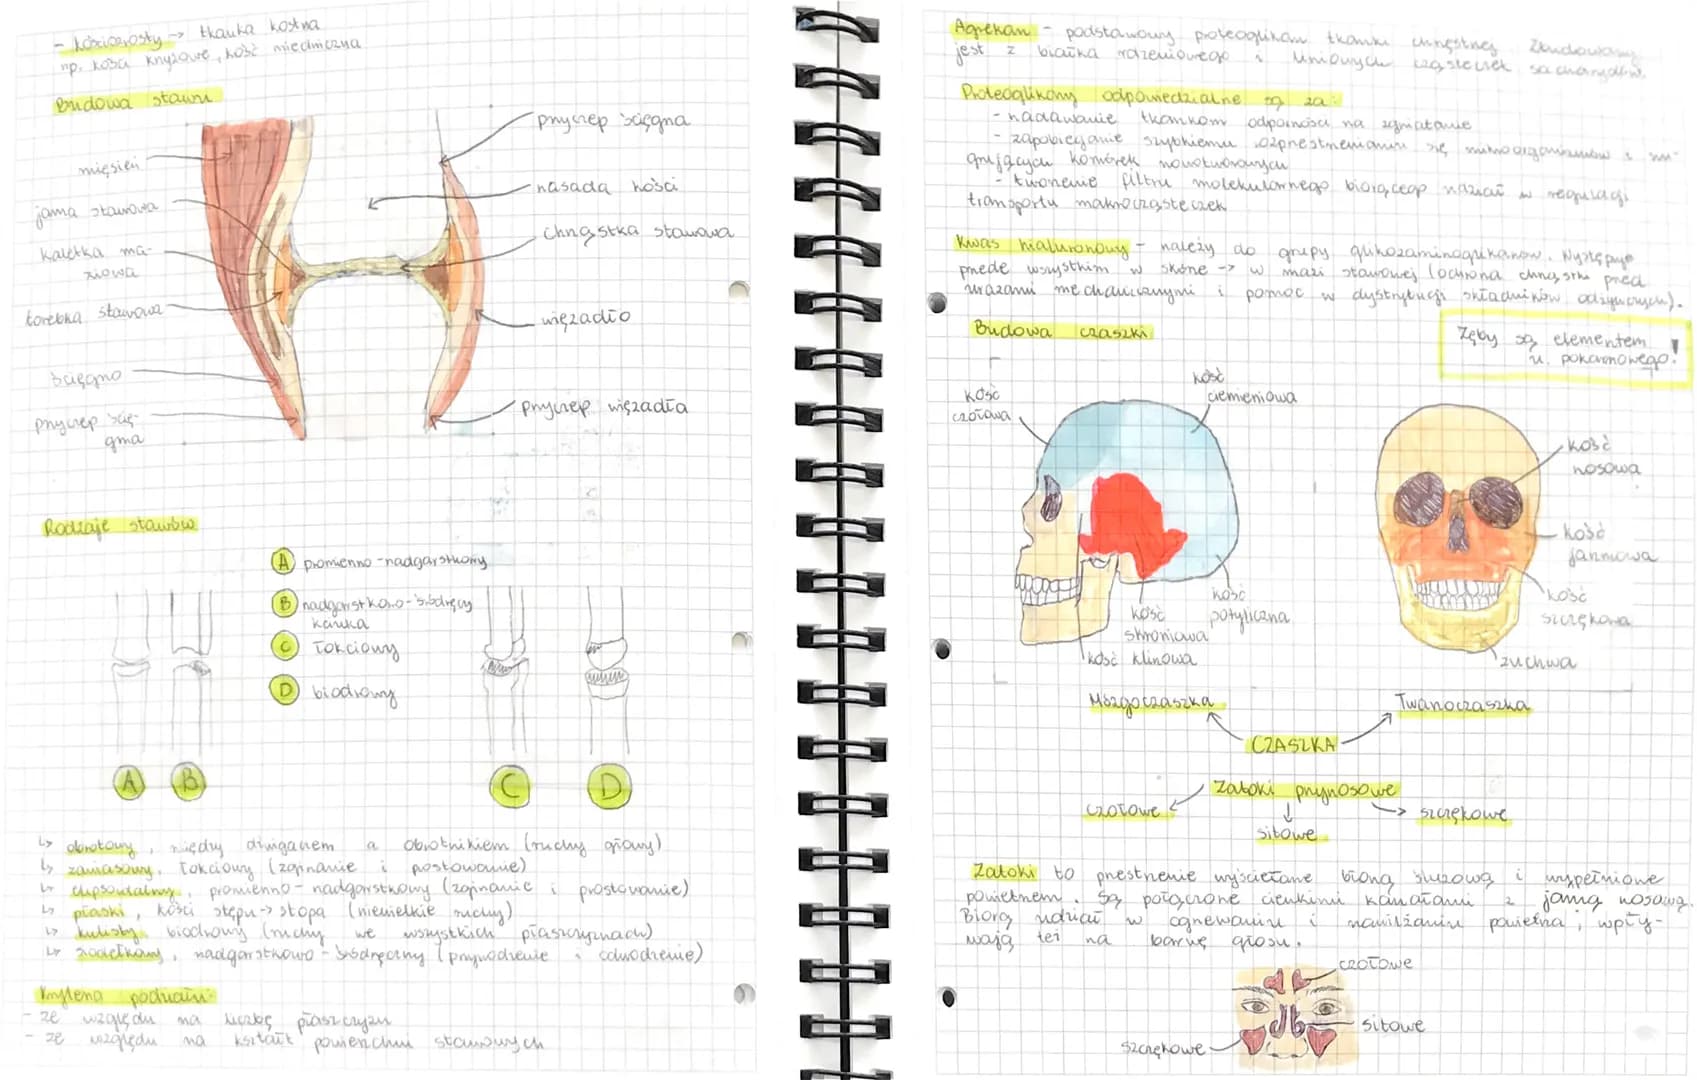 - kościozrosty -> tkanka kostna
np. kości krzyżowe, kość miedniczna
Budowa stawu
mięsień
jama stawowa
kaletka ma-
ziowa
torebka stawowa
ścięgno
przyczep ścię-
gna
przyczep ścięgna
nasada kości
chrząstka stawowa
więzadło
przyczep więzadła
Rodzaje stawów
A promienno-nadgarstkowy
B nadgarstkowo-śródręczny
kciuka
C łokciowy
D biodrowy
A B C D
↳ obrotowy, między dźwigaczem a obrotnikiem (ruchy głowy)
↳ zawiasowy, łokciowy (zginanie i prostowanie)
↳ elipsoidalny, promienno-nadgarstkowy (zginanie i prostowanie)
↳ płaski, kości stępu -> stopa (niewielkie ruchy)
↳ kulisty, biodrowy (ruchy we wszystkich płaszczyznach)
↳ siodełkowy, nadgarstkowo-śródręczny (przywodzenie i odwodzenie)
Kryteria podziału:
- ze względu na liczbę płaszczyzn
- ze względu na kształt powierzchni stawowych
Agrekan - podstawowy proteoglikan tkanki chrzęstnej. Zbudowany
jest z białka rdzeniowego i liniowych cząsteczek sacharydów.
Proteoglikany odpowiedzialne są za:
- nadawanie tkankom odporności na zgniatanie
- zapobieganie szybkiemu rozprzestrzenianiu się mikroorganizmów i mi-
grujących komórek nowotworowych
- tworzenie filtru molekularnego biorącego udział w regulacji
transportu makrocząsteczek
Kwas hialuronowy - należy do grupy glikozaminoglikanów. Występuje
przede wszystkim w skórze -> w mazi stawowej (ochrona chrząstki przed
urazami mechanicznymi i pomoc w dystrybucji składników odżywczych).
Budowa czaszki
Zęby są elementem
u. pokarmowego!
kość
czołowa
kość
ciemieniowa
kość
nosowa
kość
jarzmowa
kość
szczękowa
żuchwa
kość
potyliczna
kość
skroniowa
kość klinowa
Mózgoczaszka
Twarzoczaszka
CZASZKA
Zatoki przynosowe
czołowe
sitowe
szczękowe
Zatoki to przestrzenie wyścielane błoną śluzową i wypełnione
powietrzem. Są połączone cienkimi kanałami z jamą nosową.
Biorą udział w ogrzewaniu i nawilżaniu powietrza, wpły-
wają też na barwę głosu.
czołowe
sitowe
szczękowe